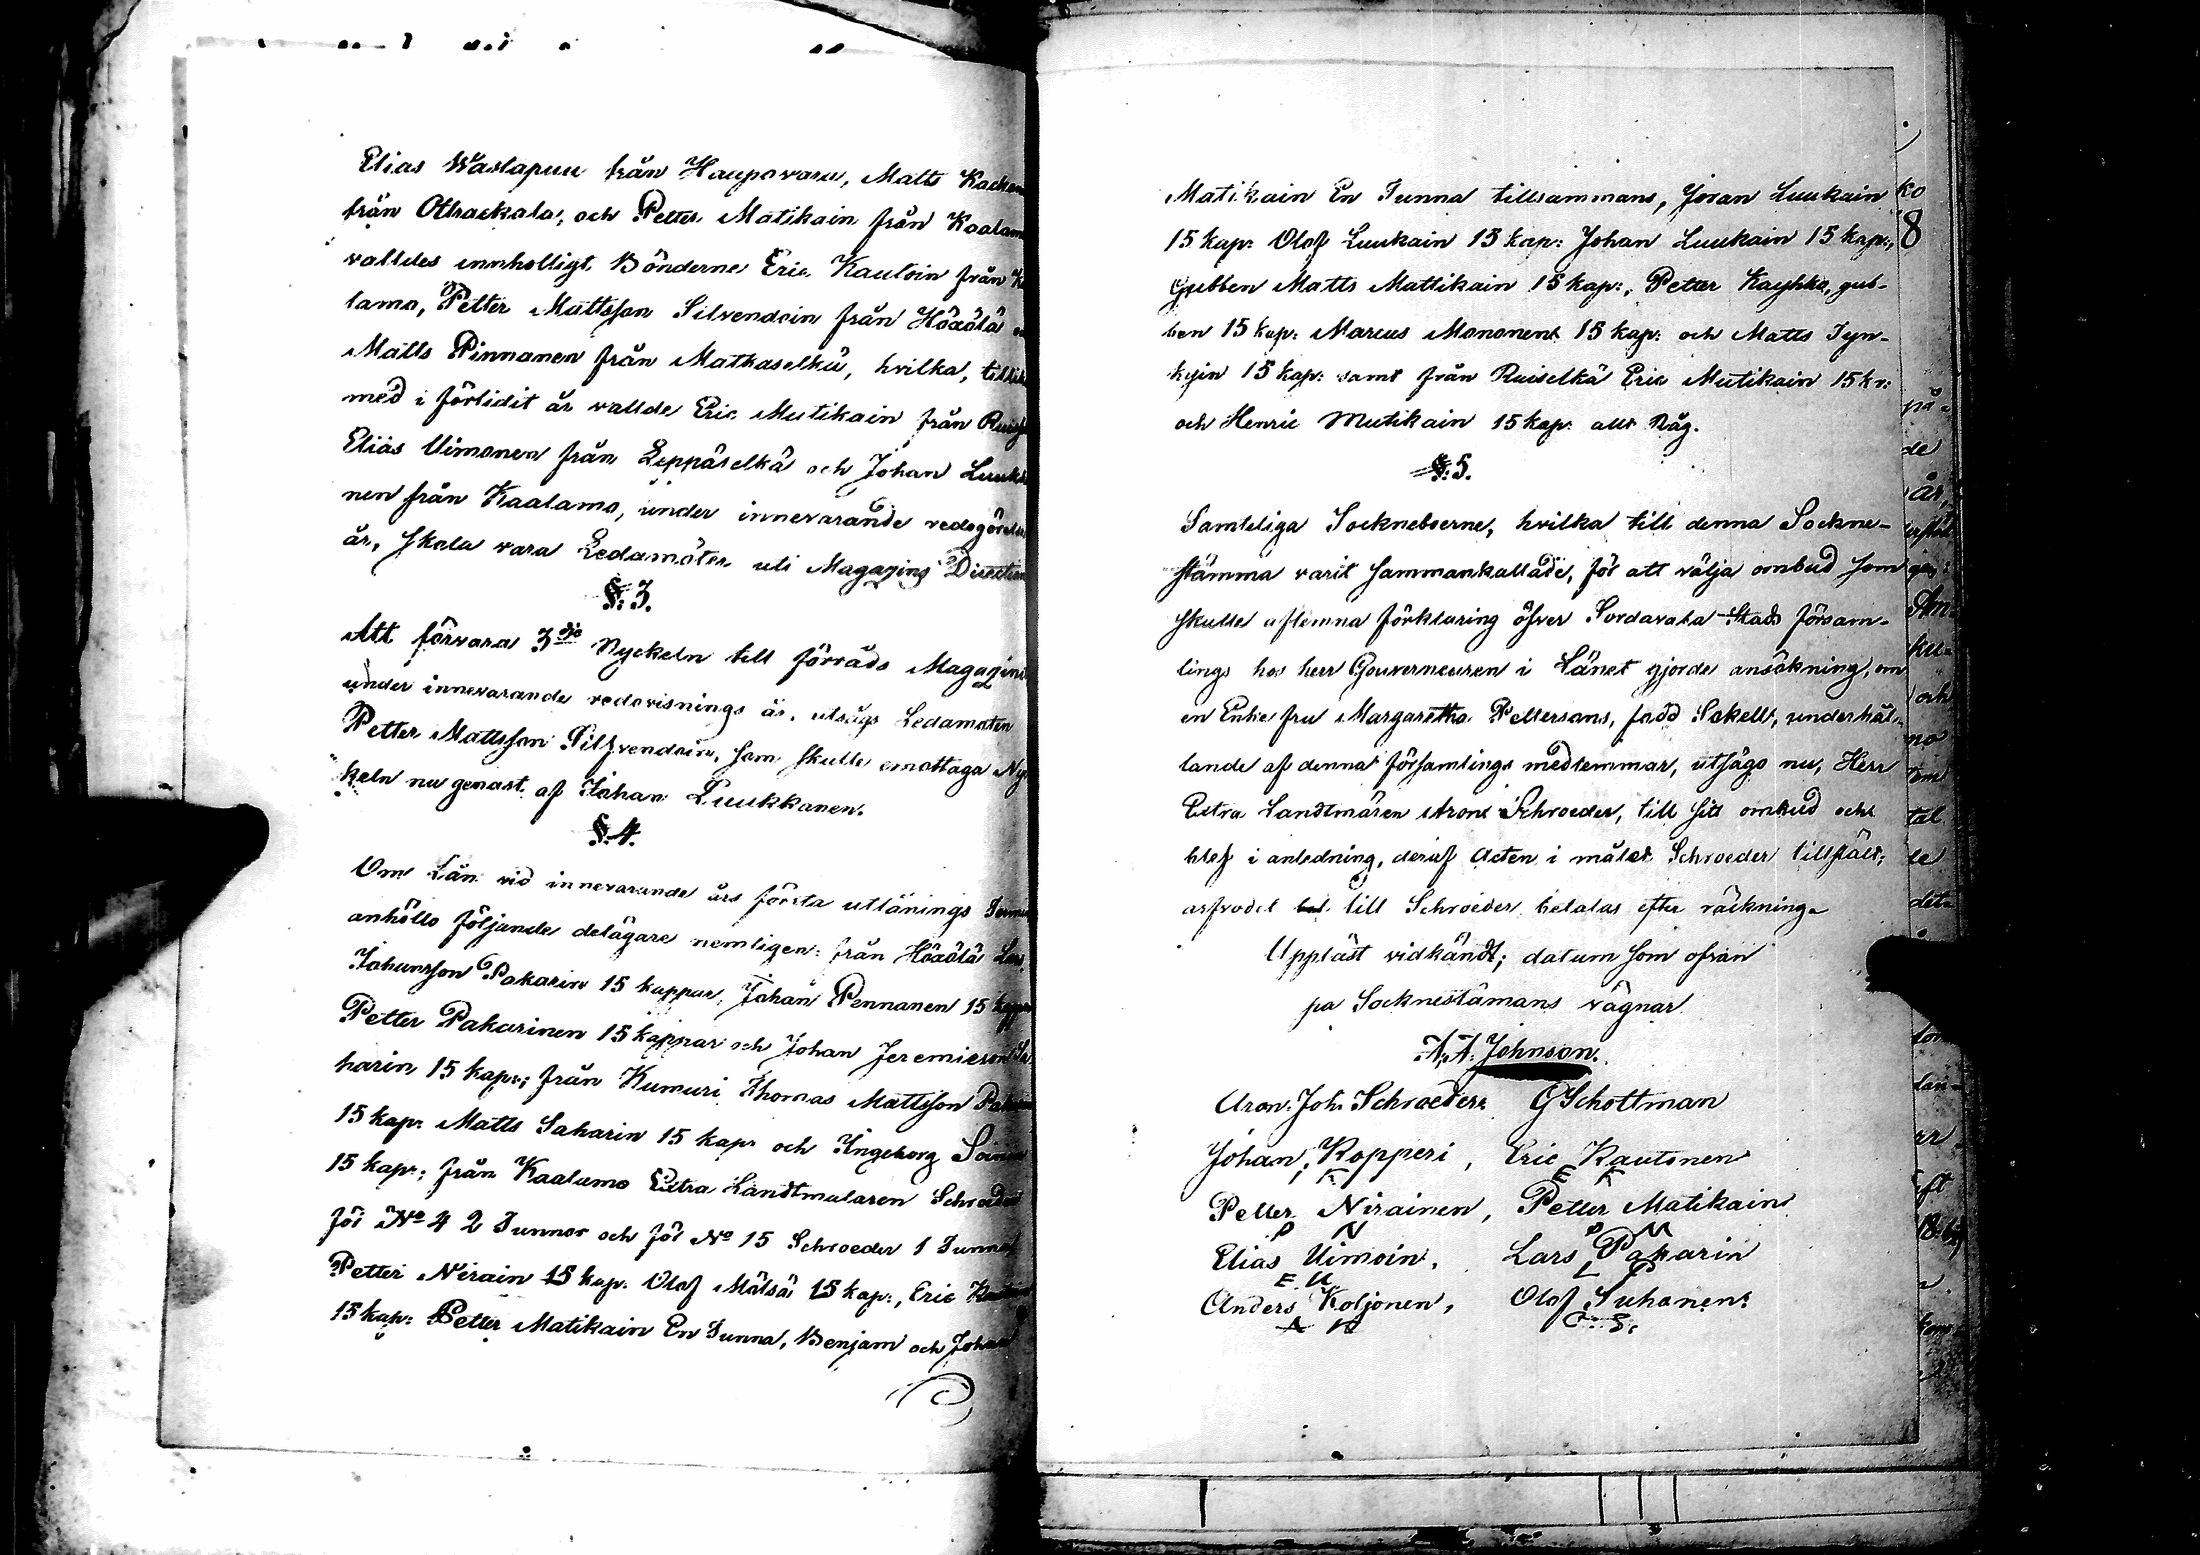 Elias Waslapuu från Haupavara, Matts
från Otrackala, och Petter Matikain från Kaalam
valldes ennhelligt Bönderne Eric Kautoin från
lamo, Petter Mattsson Silvendoin från Höxölä
Matts Pinnanen från Matkaselkä, hvilka,
med i förlidit år vallde Eric Mutikain från
Elias Uimonen från Leppäselkä och Johan Luuka
nen från Kaalamo, under innevarande redogörelse
år, skola vara Ledamöter uti Magazins Direction
§: 3.
Att förvara 3dje Nyckeln till förråds Magazine
under innevarande redovisnings år, utsågs Ledamoten
Petter Mattsson Silfvendoin, som skulle emottaga Ny
keln nu genast af Johan Luukkanen.
§: 4.
Om Lån vid innevarande års första utlånings
anhöllo följande delägare nemligen: från Höxölä Lars
Johansson Pakarin 15 kappar, Johan Pennanen 15
Petter Pakarinen 15 kappar och Johan Jeremiesson
harin 15 kap:; från Kumuri Thomas Mattsson
15 kap: Matts Saharin 15 kap: och Ingeborg
15 kap:; från Kaalamo Extra Landtmätaren
för No 4 2 Tunnor och för No 15 Schroeder 1 Tunna
Petter Nirain 15 kap: Olof Mälsä 15 kap:, Eric
15 kap: Petter Matikain En Tunna, Benjam och Johan
Matikain En Tunna tillsammans, Jöran Luukain
15 kap: Olof Luukain 15 kap: Johan Luukain 15 kap:,
gubben Matts Mattikain 15 kap:, Petter Kayhko, gub-
ben 15 kap: Marcus Mononen 15 kap: och Matts Tyn-
kyin 15 kap: samt från Ruiselkä Eric Mutikain 15 kr:
och Henric Mutikain 15 kap: allt Råg.
§: 5.
Samteliga Sockneboerne, hvilka till denna Sockne-
stämma varit sammankallade, för att välja ombud som
skulle aflemna förklaring öfver Sordavala Stads försam-
lings hos herr Gouverneuren i Länet gjorde ansökning, om
en Enke fru Margaretha Pettersons, född Sakell, underhål-
lande af denna församlings medlemmar, utsågo nu, Herr
Extra Landtmären Aron Schroeder, till sitt ombud och
blef i anledning, deraf Acten i målet Schroeder tillstält;
arfvodet till Schroeder betalas efter räkning.
Uppläst vidkändt; datum som ofvan
pa Socknestämans vägnar
A. A. Johnson.
Aron. Joh. Schroeder. G Schottman
Johan Kopperi, Eric Kautonen
I. K. E K
Petter Nirainen, Petter Matikain
P N P M
Elias Uimoin, Lars Pakarin
E U L P
Anders Koljonen, Olof Suhonen:
A K O. S.